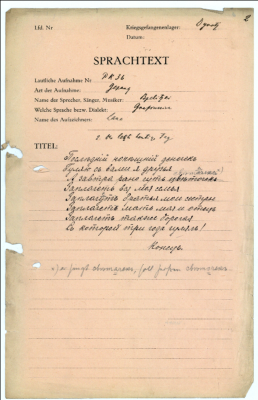 2
Lfd. Nr.
Kriegsgefangenenlager:
Datum:
SPRACHTEXT
Lautliche Aufnahme Nr. PK 56
Art der Aufnahme: Gesang
Name der Sprecher, Sänger, Musiker:
Welche Sprache bzw. Dialekt:
Name des Aufzeichners:
TITEL:
2. Der letzte heutige Tag
Последній нонѣшній денечекъ
Гуляю съ вами я друзья
А завтра рано чуть
Заплачетъ вся моя семья
Заплачутъ братья мои сестры
Заплачетъ мать моя и отецъ
Заплачетъ также дорогая
Съ которой три года гулялъ!
Конецъ.